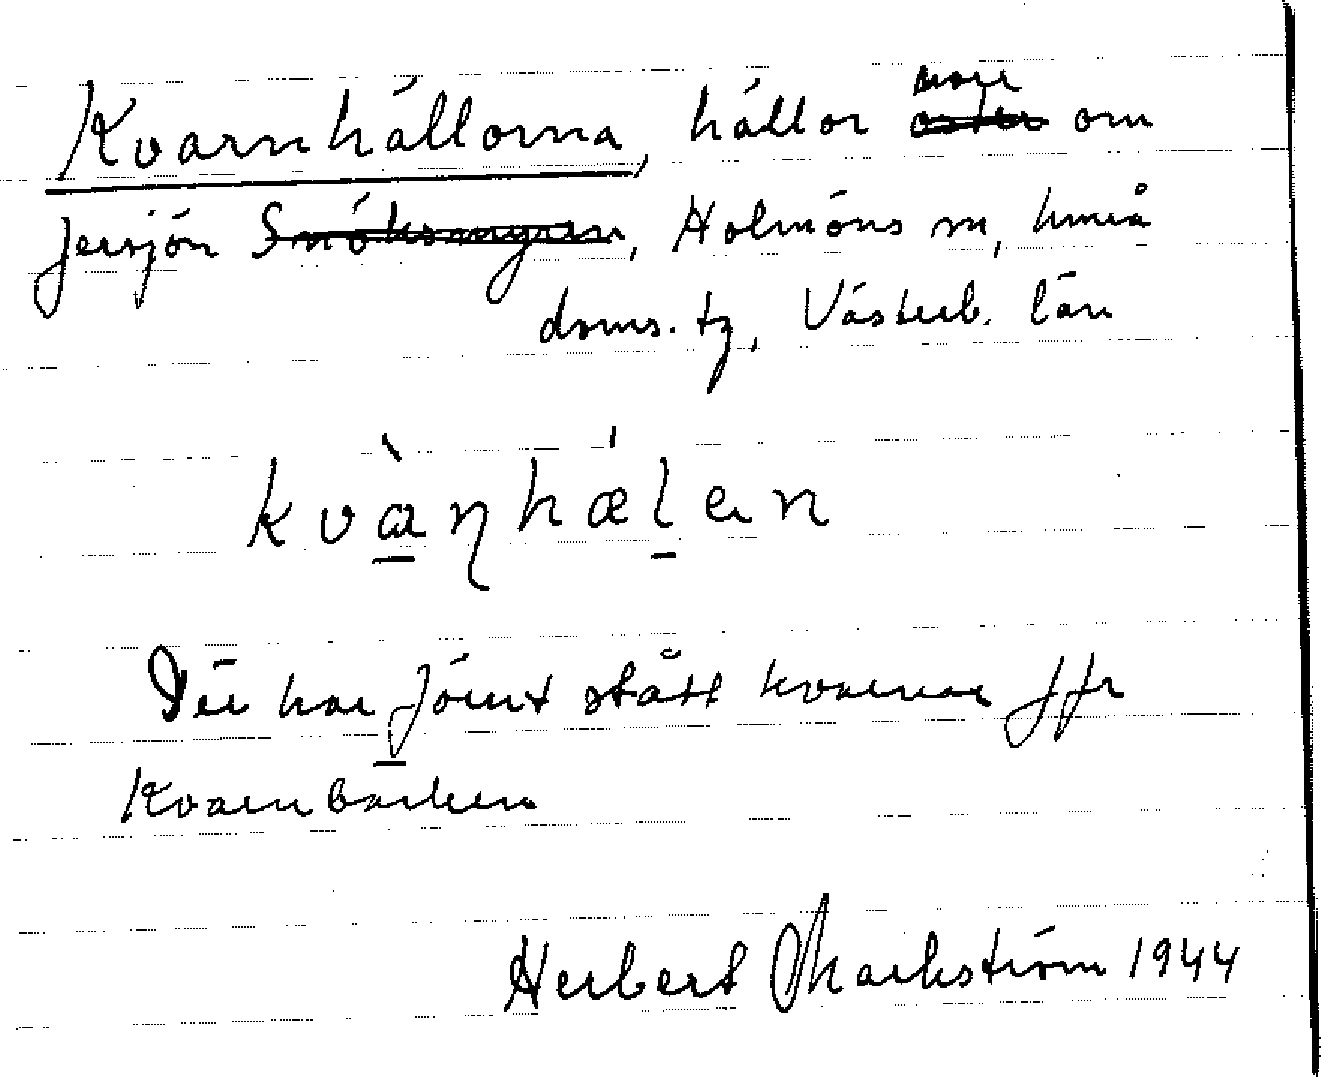 Kvarnhällorna, hällor norr om
Jersjön, Holmöns sn, Umeå
doms. tg, Västerb. län
kvàṇhæḷen
Där har förut stått kvarnar jfr
Kvarnbacken
Herbert Markström 1944